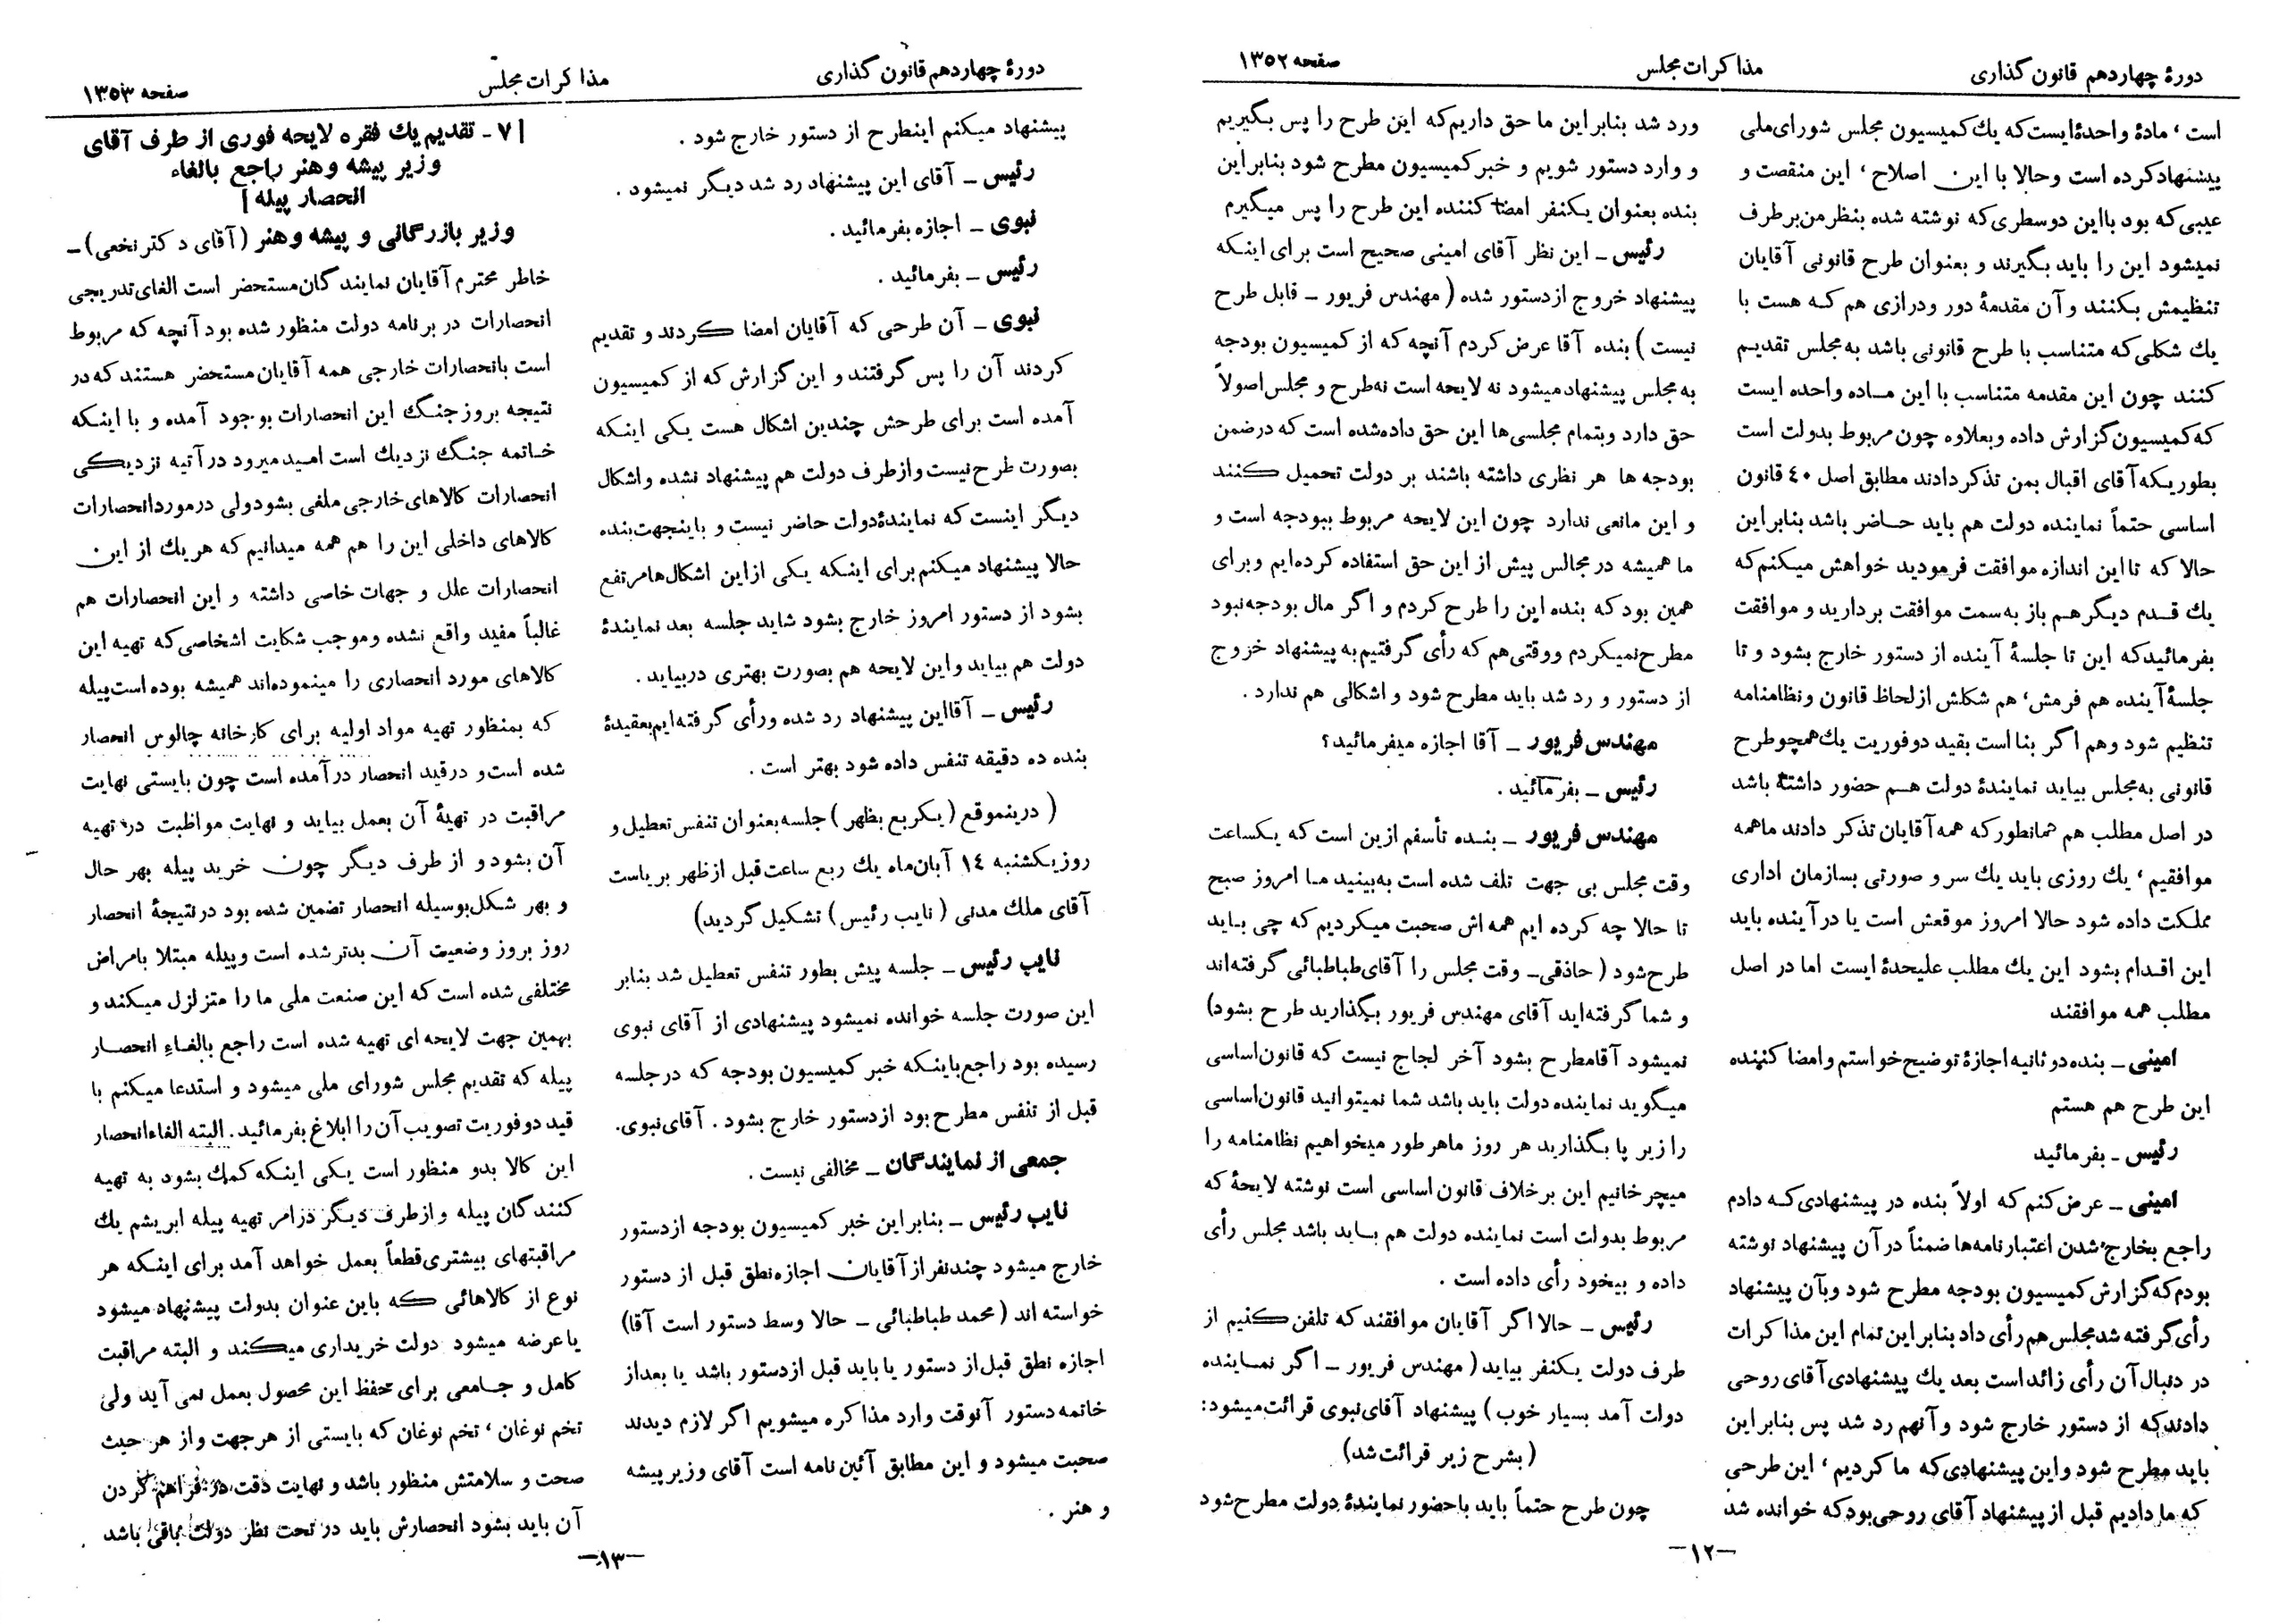 دورهٔ چهاردهم قانون گذاری
مذاکرات مجلس
صفحه ۱۳۵۲
است ، مادهٔ واحدهٔ‌ایست که یك کمیسیون مجلس شورای ملی
پیشنهاد کرده است وحالا با این اصلاح ، این منقصت و
عیبی که بود بااین دو سطری که نوشته شده بنظر من برطرف
نمیشود این را باید بگیرند و بعنوان طرح قانونی آقایان
تنظیمش بکنند و آن مقدمهٔ دور ودرازی هم که هست با
یك شکلی که متناسب با طرح قانونی باشد به مجلس تقدیم
کنند چون این مقدمه متناسب با این ماده واحده ایست
که کمیسیون گزارش داده وبعلاوه چون مربوط بدولت است
بطوریکه آقای اقبال بمن تذکر دادند مطابق اصل ٤٠ قانون
اساسی حتماً نماینده دولت هم باید حاضر باشد بنابراین
حالا که تا این اندازه موافقت فرمودید خواهش میکنم که
یك قدم دیگر هم باز به سمت موافقت بردارید و موافقت
بفرمائید که این تا جلسهٔ آینده از دستور خارج بشود و تا
جلسهٔ آینده هم فرمش ، هم شکلش از لحاظ قانون و نظامنامه
تنظیم شود وهم اگر بنا است بقید دو فوریت یك همچو طرح
قانونی به مجلس بیاید نمایندهٔ دولت هم حضور داشته باشد
در اصل مطلب هم همانطور که همه آقایان تذکر دادند ماهمه
موافقیم ، یك روزی باید یك سر و صورتی بسازمان اداری
مملکت داده شود حالا امروز موقعش است یا در آینده باید
این اقدام بشود این یك مطلب علیحدهٔ ایست اما در اصل
مطلب همه موافقند
امینی ـ بنده دو ثانیه اجازهٔ توضیح خواستم و امضا کننده
این طرح هم هستم
رئیس ـ بفرمائید
امینی ـ عرض کنم که اولاً بنده در پیشنهادی که دادم
راجع بخارج شدن اعتبارنامه‌ها ضمناً در آن پیشنهاد نوشته
بودم که گزارش کمیسیون بودجه مطرح شود وبآن پیشنهاد
رأی گرفته شد مجلس هم رأی داد بنابراین تمام این مذاکرات
در دنبال آن رأی زائد است بعد یك پیشنهادی آقای روحی
دادند که از دستور خارج شود و آنهم رد شد پس بنابراین
باید مطرح شود و این پیشنهادی که ما کردیم ، این طرحی
که ما دادیم قبل از پیشنهاد آقای روحی بود که خوانده شد
ورد شد بنابراین ما حق داریم که این طرح را پس بگیریم
و وارد دستور شویم و خبر کمیسیون مطرح شود بنابراین
بنده بعنوان یکنفر امضا کننده این طرح را پس میگیرم
رئیس ـ این نظر آقای امینی صحیح است برای اینکه
پیشنهاد خروج از دستور شده ( مهندس فریور ـ قابل طرح
نیست ) بنده آقا عرض کردم آنچه که از کمیسیون بودجه
به مجلس پیشنهاد میشود نه لایحه است نه طرح و مجلس اصولاً
حق دارد وبتمام مجلسی‌ها این حق داده‌شده است که درضمن
بودجه ها هر نظری داشته باشند بر دولت تحمیل کنند
و این مانعی ندارد چون این لایحه مربوط ببودجه است و
ما همیشه در مجالس پیش از این حق استفاده کرده‌ایم وبرای
همین بود که بنده این را طرح کردم و اگر مال بودجه نبود
مطرح نمیکردم ووقتی هم که رأی گرفتیم به پیشنهاد خروج
از دستور و رد شد باید مطرح شود و اشکالی هم ندارد .
مهندس فریور ـ آقا اجازه میفرمائید؟
رئیس ـ بفرمائید .
مهندس فریور ـ بنده تأسفم ازین است که یکساعت
وقت مجلس بی جهت تلف شده است به‌بینید ما امروز صبح
تا حالا چه کرده ایم همه‌اش صحبت میکردیم که چی باید
طرح شود ( حاذقی ـ وقت مجلس را آقای طباطبائی گرفته‌اند
و شما گرفته‌اید آقای مهندس فریور بگذارید طرح بشود)
نمیشود آقا مطرح بشود آخر لجاج نیست که قانون‌اساسی
میگوید نماینده دولت باید باشد شما نمیتوانید قانون‌اساسی
را زیر پا بگذارید هر روز ماهر طور میخواهیم نظامنامه را
میچرخانیم این برخلاف قانون اساسی است نوشته لایحهٔ که
مربوط بدولت است نماینده دولت هم باید باشد مجلس رأی
داده و بیخود رأی داده است .
رئیس ـ حالا اگر آقایان موافقند که تلفن کنیم از
طرف دولت یکنفر بیاید ( مهندس فریور ـ اگر نماینده
دولت آمد بسیار خوب ) پیشنهاد آقای نبوی قرائت میشود:
( بشرح زیر قرائت شد)
چون طرح حتماً باید با حضور نمایندهٔ دولت مطرح شود
ـ۱۲ـ
دورهٔ چهاردهم قانون گذاری
مذاکرات مجلس
صفحه ۱۳۵۳
پیشنهاد میکنم اینطرح از دستور خارج شود .
رئیس ـ آقای این پیشنهاد رد شد دیگر نمیشود .
نبوی ـ اجازه بفرمائید .
رئیس ـ بفرمائید .
نبوی ـ آن طرحی که آقایان امضا کردند و تقدیم
کردند آن را پس گرفتند و این گزارش که از کمیسیون
آمده است برای طرحش چندین اشکال هست یکی اینکه
بصورت طرح نیست وازطرف دولت هم پیشنهاد نشده و اشکال
دیگر اینست که نمایندهٔ دولت حاضر نیست و باینجهت بنده
حالا پیشنهاد میکنم برای اینکه یکی ازاین اشکال‌ها مرتفع
بشود از دستور امروز خارج بشود شاید جلسه بعد نمایندهٔ
دولت هم بیاید و این لایحه هم بصورت بهتری دربیاید .
رئیس ـ آقااین پیشنهاد رد شده ورأی گرفته‌ایم بعقیدهٔ
بنده ده دقیقه تنفس داده شود بهتر است .
( درینموقع (یکربع بظهر) جلسه بعنوان تنفس تعطیل و
روز یکشنبه ١٤ آبان‌ماه یك ربع ساعت قبل از ظهر بریاست
آقای ملك مدنی ( نایب رئیس ) تشکیل گردید)
نایب رئیس ـ جلسه پیش بطور تنفس تعطیل شد بنابر
این صورت جلسه خوانده نمیشود پیشنهادی از آقای نبوی
رسیده بود راجع باینکه خبر کمیسیون بودجه که درجلسه
قبل از تنفس مطرح بود ازدستور خارج بشود . آقای نبوی.
جمعی از نمایندگان ـ مخالفی نیست .
نایب رئیس ـ بنابراین خبر کمیسیون بودجه ازدستور
خارج میشود چندنفر از آقایان اجازه نطق قبل از دستور
خواسته اند ( محمد طباطبائی ـ حالا وسط دستور است آقا)
اجازه نطق قبل از دستور یا باید قبل ازدستور باشد یا بعداز
خاتمه دستور آنوقت وارد مذاکره میشویم اگر لازم دیدند
صحبت میشود و این مطابق آئین نامه است آقای وزیر پیشه
و هنر .
[ ۷ ـ تقدیم یك فقره لایحه فوری از طرف آقای
وزیر پیشه وهنر راجع بالغاء
انحصار پیله ]
وزیر بازرگانی و پیشه وهنر (آقای دکتر نخعی) ـ
خاطر محترم آقایان نمایندگان مستحضر است الغای تدریجی
انحصارات در برنامه دولت منظور شده بود آنچه که مربوط
است بانحصارات خارجی همه آقایان مستحضر هستند که در
نتیجه بروز جنگ این انحصارات بوجود آمده و با اینکه
خاتمه جنگ نزدیك است امید میرود در آتیه نزدیکی
انحصارات کالاهای خارجی ملغی بشود ولی درمورد انحصارات
کالاهای داخلی این را هم همه میدانیم که هریك از این
انحصارات علل و جهات خاصی داشته و این انحصارات هم
غالباً مفید واقع نشده وموجب شکایت اشخاصی که تهیه این
کالاهای مورد انحصاری را مینموده‌اند همیشه بوده است پیله
که بمنظور تهیه مواد اولیه برای کارخانه چالوس انحصار
شده است و درقید انحصار درآمده است چون بایستی نهایت
مراقبت در تهیهٔ آن بعمل بیاید و نهایت مواظبت در تهیه
آن بشود و از طرف دیگر چون خرید پیله بهر حال
و بهر شکل بوسیله انحصار تضمین شده بود در نتیجهٔ انحصار
روز بروز وضعیت آن بدتر شده است و پیله مبتلا بامراض
مختلفی شده است که این صنعت ملی ما را متزلزل میکند و
بهمین جهت لایحه ای تهیه شده است راجع بالغاء انحصار
پیله که تقدیم مجلس شورای ملی میشود و استدعا میکنم با
قید دو فوریت تصویب آن را ابلاغ بفرمائید. البته الغاء انحصار
این کالا بدو منظور است یکی اینکه کمك بشود به تهیه
کنندگان پیله و ازطرف دیگر درامر تهیه پیله ابریشم یك
مراقبتهای بیشتری قطعاً بعمل خواهد آمد برای اینکه هر
نوع از کالاهائی که باین عنوان بدولت پیشنهاد میشود
یا عرضه میشود دولت خریداری میکند و البته مراقبت
کامل و جامعی برای حفظ این محصول بعمل نمی آید ولی
تخم نوغان ، تخم نوغان که بایستی از هر جهت و از هر حیث
صحت و سلامتش منظور باشد و نهایت دقت در فراهم کردن
آن باید بشود انحصارش باید در تحت نظر دولت باقی باشد
ـ۱۳ـ